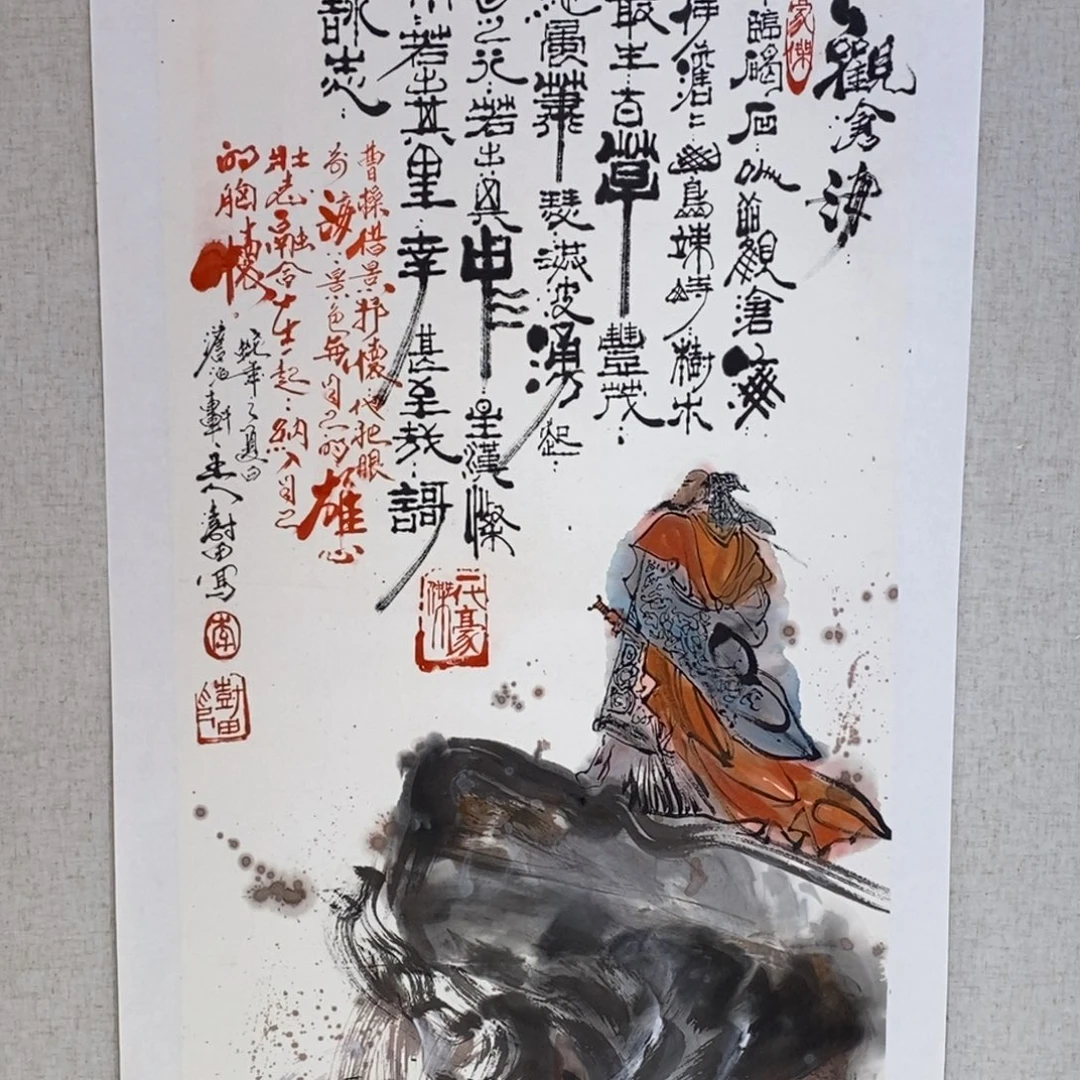 觀滄海
豪傑
臨碣石以觀滄海
澹:山島竦峙樹木
叢生百草豐茂
風蕭瑟洪波湧起
之行若出其中星漢燦
若出其里幸甚至哉謌
詠志
曹操借景抒懷他把眼
前海景色與自己的雄心
壯志融合在一起納入自己
的胸懷
蛇年之夏日
澹泊軒主人樹田寫
一代豪傑
李
樹田印